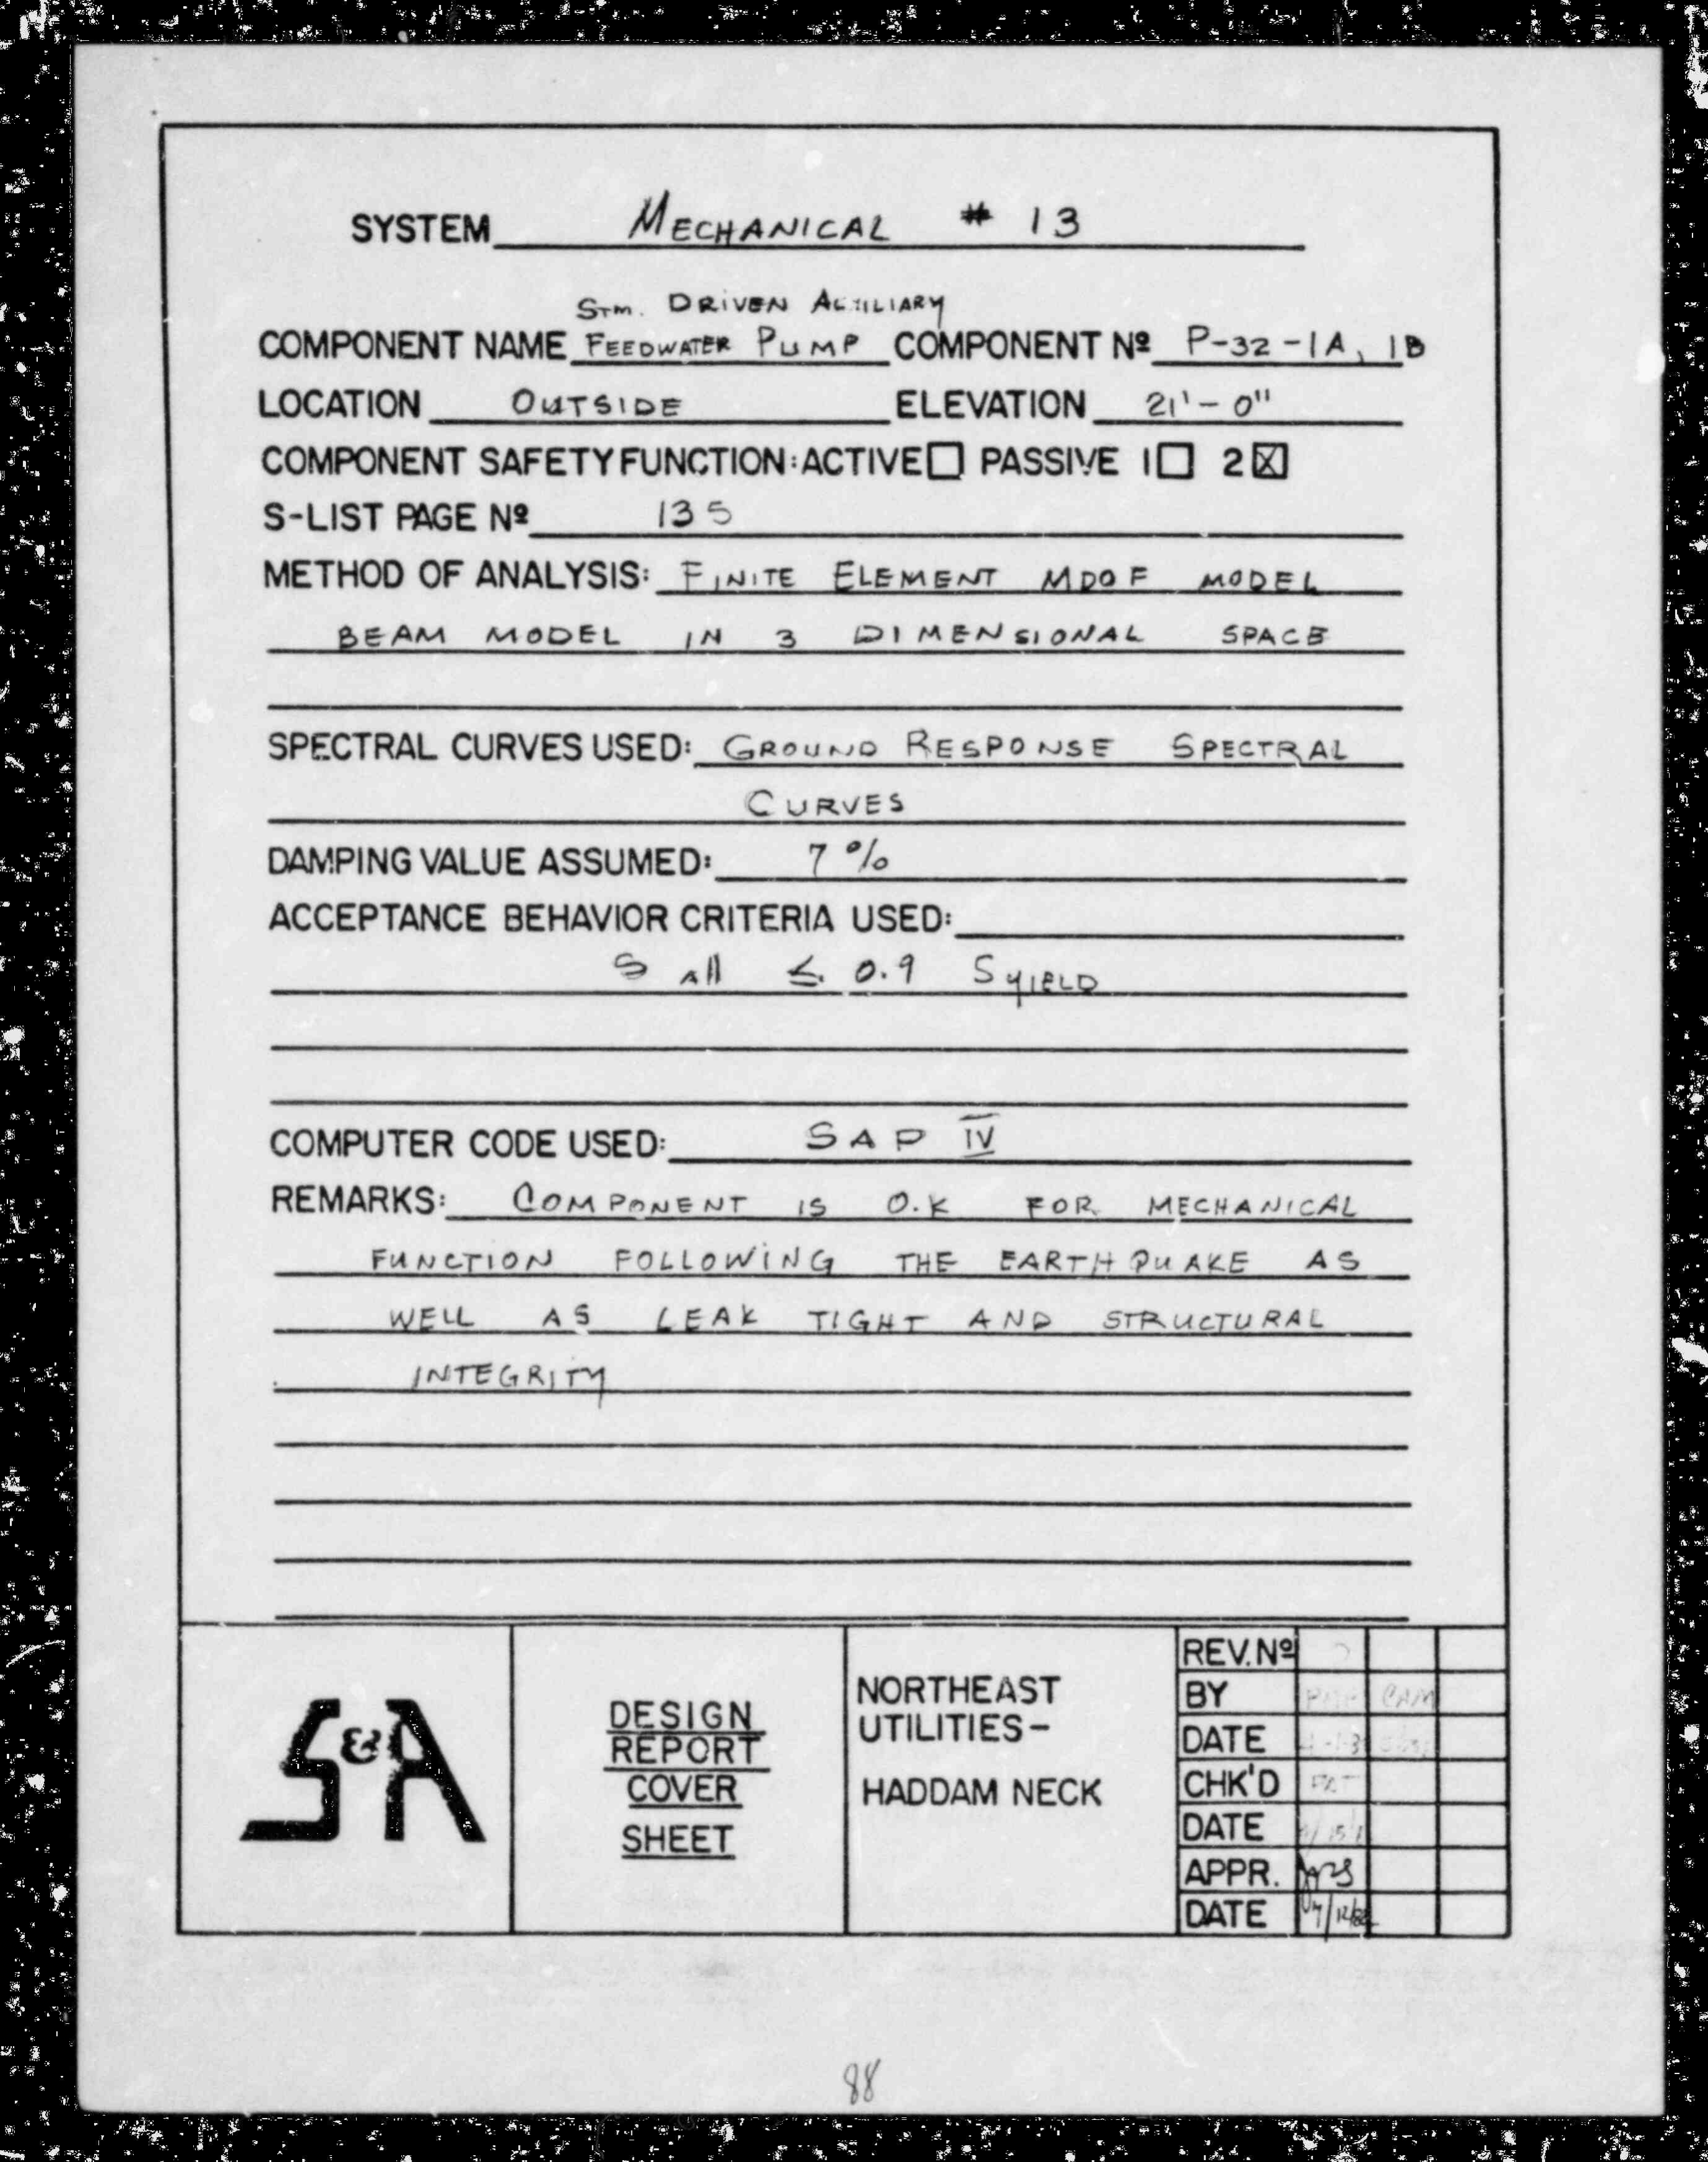 SYSTEM MECHANICAL # 13
STM. DRIVEN AUXILIARY
COMPONENT NAME FEEDWATER PUMP COMPONENT Nº P-32-1A, 1B
LOCATION OUTSIDE ELEVATION 21'-0"
COMPONENT SAFETY FUNCTION: ACTIVE☐ PASSIVE 1☐ 2☒
S-LIST PAGE Nº 135
METHOD OF ANALYSIS: FINITE ELEMENT MDOF MODEL
BEAM MODEL IN 3 DIMENSIONAL SPACE
SPECTRAL CURVES USED: GROUND RESPONSE SPECTRAL
CURVES
DAMPING VALUE ASSUMED: 7 %
ACCEPTANCE BEHAVIOR CRITERIA USED:
S All ≤ 0.9 S YIELD
COMPUTER CODE USED: SAP IV
REMARKS: COMPONENT IS O.K FOR MECHANICAL
FUNCTION FOLLOWING THE EARTHQUAKE AS
WELL AS LEAK TIGHT AND STRUCTURAL
INTEGRITY
S&A
DESIGN
REPORT
COVER
SHEET
NORTHEAST
UTILITIES-
HADDAM NECK
REV. Nº
BY CAM
DATE
CHK'D
DATE
APPR.
DATE
88